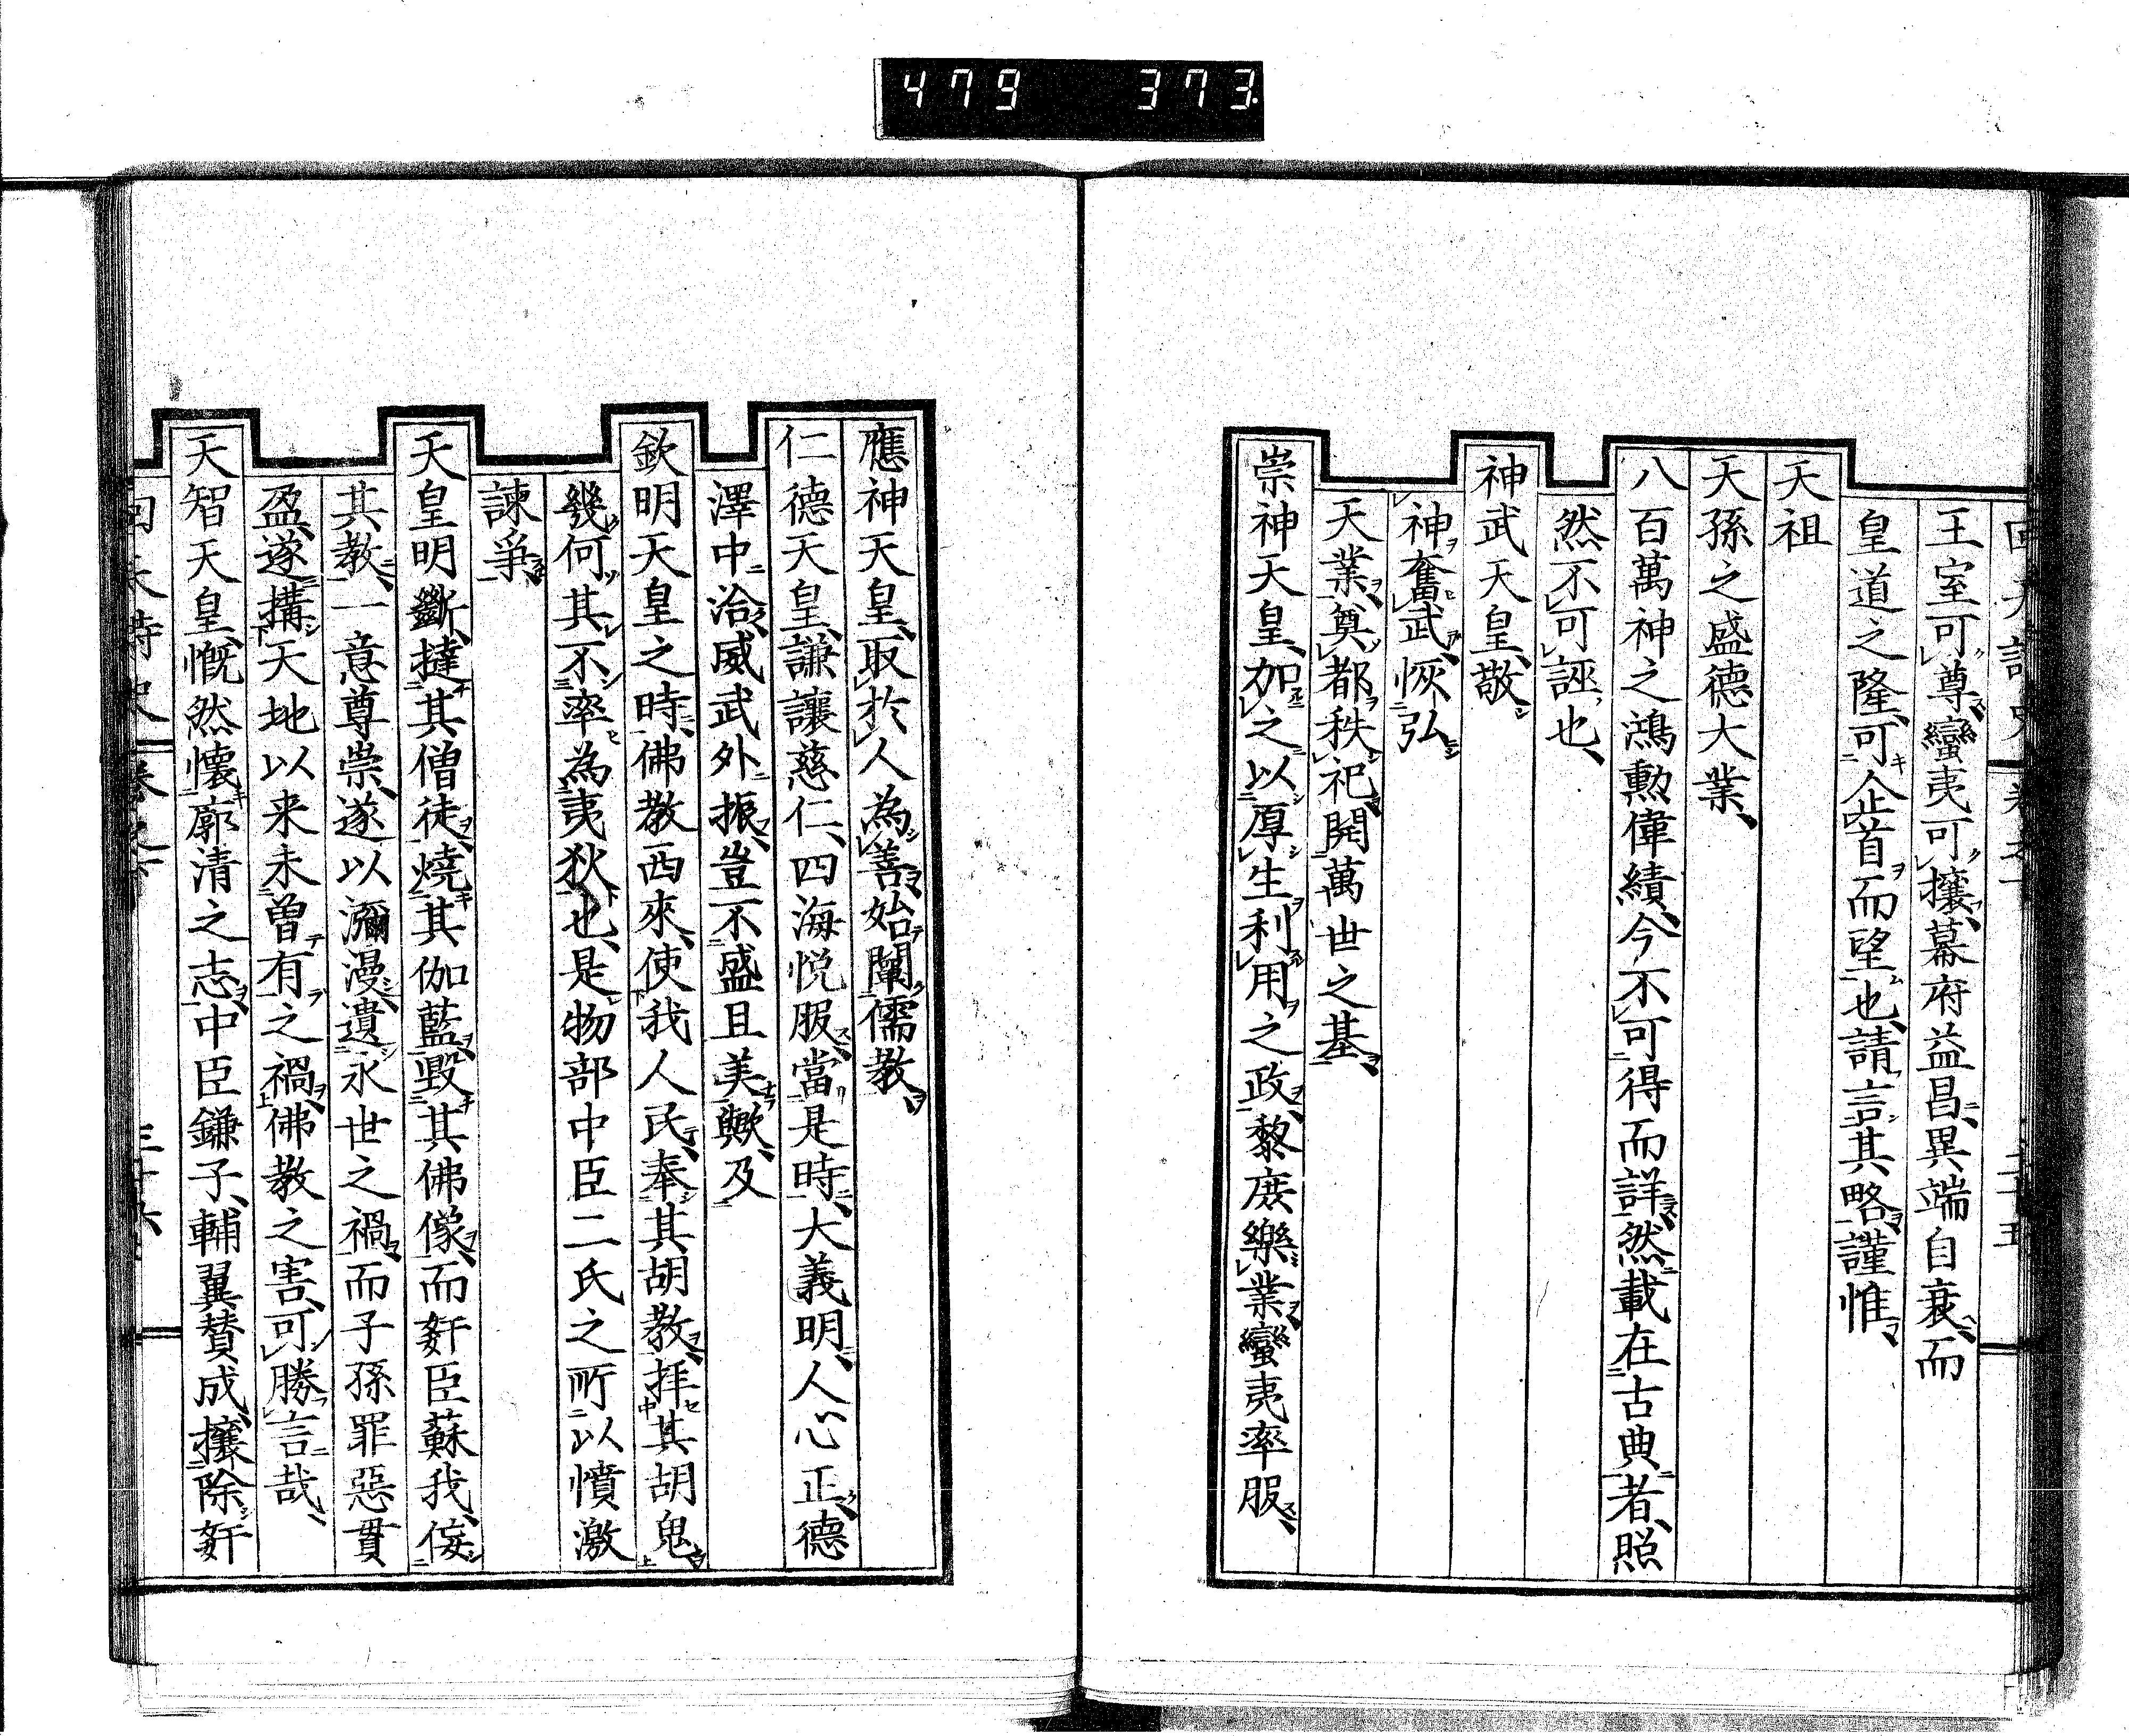 479 373
王室可尊、蠻夷可攘、幕府益昌、異端自衰、而
皇道之隆、可企首而望也、請言其略、謹惟、
天祖
天孫之盛德大業、
八百萬神之鴻勳偉績、今不可得而詳、然載在古典者、照
然不可誣也、
神武天皇、敬
神奮武、恢弘
天業、奠都秩祀、開萬世之基、
崇神天皇、加之以厚生利用之政、黎庶樂業、蠻夷率服、
應神天皇、取於人為善、始闡儒教、
仁德天皇、謙讓慈仁、四海悅服、當是時、大義明、人心正、德
澤中洽、威武外振、豈不盛且美歟、及
欽明天皇之時、佛教西來、使我人民、奉其胡教、拜其胡鬼
幾何其不率為夷狄也、是物部中臣二氏之所以憤激
諫爭、
天皇明斷、撻其僧徒、燒其伽藍、毀其佛像、而姧臣蘇我、佞
其教、一意尊崇、遂以瀰漫、遺永世之禍、而子孫罪惡貫
盈、遂搆天地以来未曽有之禍、佛教之害、可勝言哉、
天智天皇、慨然懷廓清之志、中臣鎌子、輔翼賛成、攘除姧